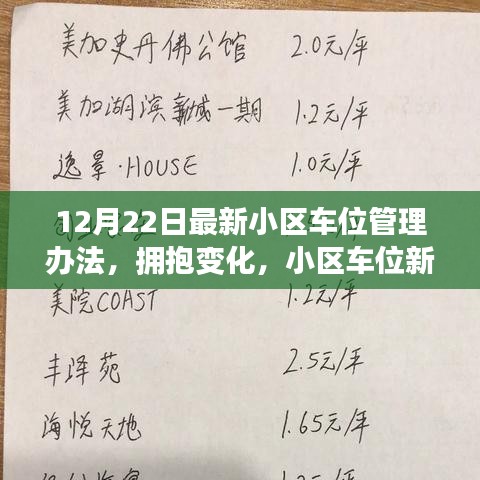 美加史丹佛公馆 2.0元/坪
美加湖滨新城一期 1.2元/坪
逸景·HOUSE 1.0元/坪
12月22日最新小区车位管理
办法，拥抱变化，小区车位新
美院COAST 1.2元/坪
丰泽苑 2.5元/坪
海悦天地 1.65元/坪